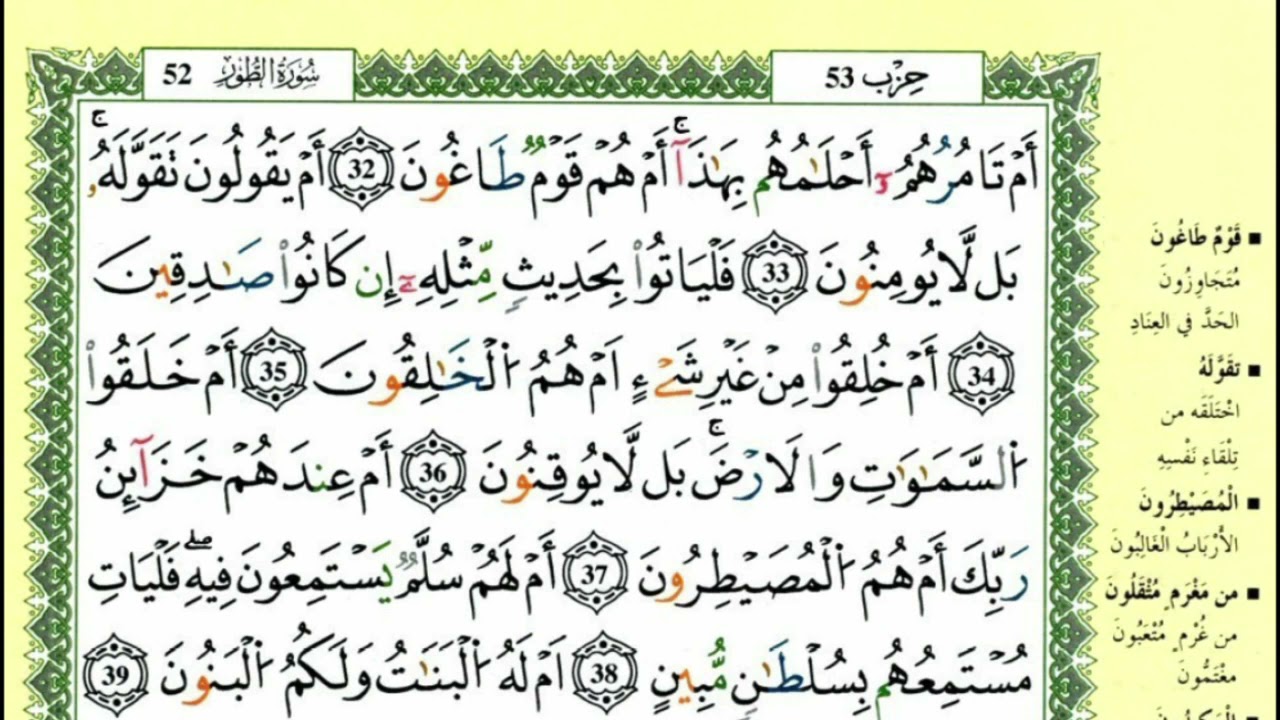 حِزْب 53
سُورَةُ الطُّورِ 52
أَمْ تَامُرُهُمُۥٓ أَحْلَٰمُهُم بِهَٰذَآ أَمْ هُمْ قَوْمٌ طَاغُونَ 32 أَمْ يَقُولُونَ تَقَوَّلَهُۥ
بَل لَّا يُومِنُونَ 33 فَلْيَاتُواْ بِحَدِيثٍ مِّثْلِهِۦٓ إِن كَانُواْ صَٰدِقِينَ
34 أَمْ خُلِقُواْ مِنْ غَيْرِ شَےْءٍ اَمْ هُمُ اُ۬لْخَٰلِقُونَ 35 أَمْ خَلَقُواْ
اُ۬لسَّمَٰوَٰتِ وَالَارْضَ بَل لَّا يُوقِنُونَ 36 أَمْ عِندَهُمْ خَزَآئِنُ
رَبِّكَ أَمْ هُمُ اُ۬لْمُصَيْطِرُونَ 37 أَمْ لَهُمْ سُلَّمٌ يَسْتَمِعُونَ فِيهِ فَلْيَاتِ
مُسْتَمِعُهُم بِسُلْطَٰنٍ مُّبِينٍ 38 اَمْ لَهُ اُ۬لْبَنَٰتُ وَلَكُمُ اُ۬لْبَنُونَ 39
■ قَوْمٌ طَاغُونَ
مُتَجَاوِزُونَ
الحَدَّ في العِنَادِ
■ تَقَوَّلَهُ
اخْتَلَقَه من
تِلْقَاءِ نَفْسِهِ
■ الْمُصَيْطِرُونَ
الأَرْبَابُ الْغَالِبُونَ
■ من مَغْرَمٍ مُثْقَلُونَ
من غُرْمٍ مُتْعَبُونَ
مغْتَمُّونَ